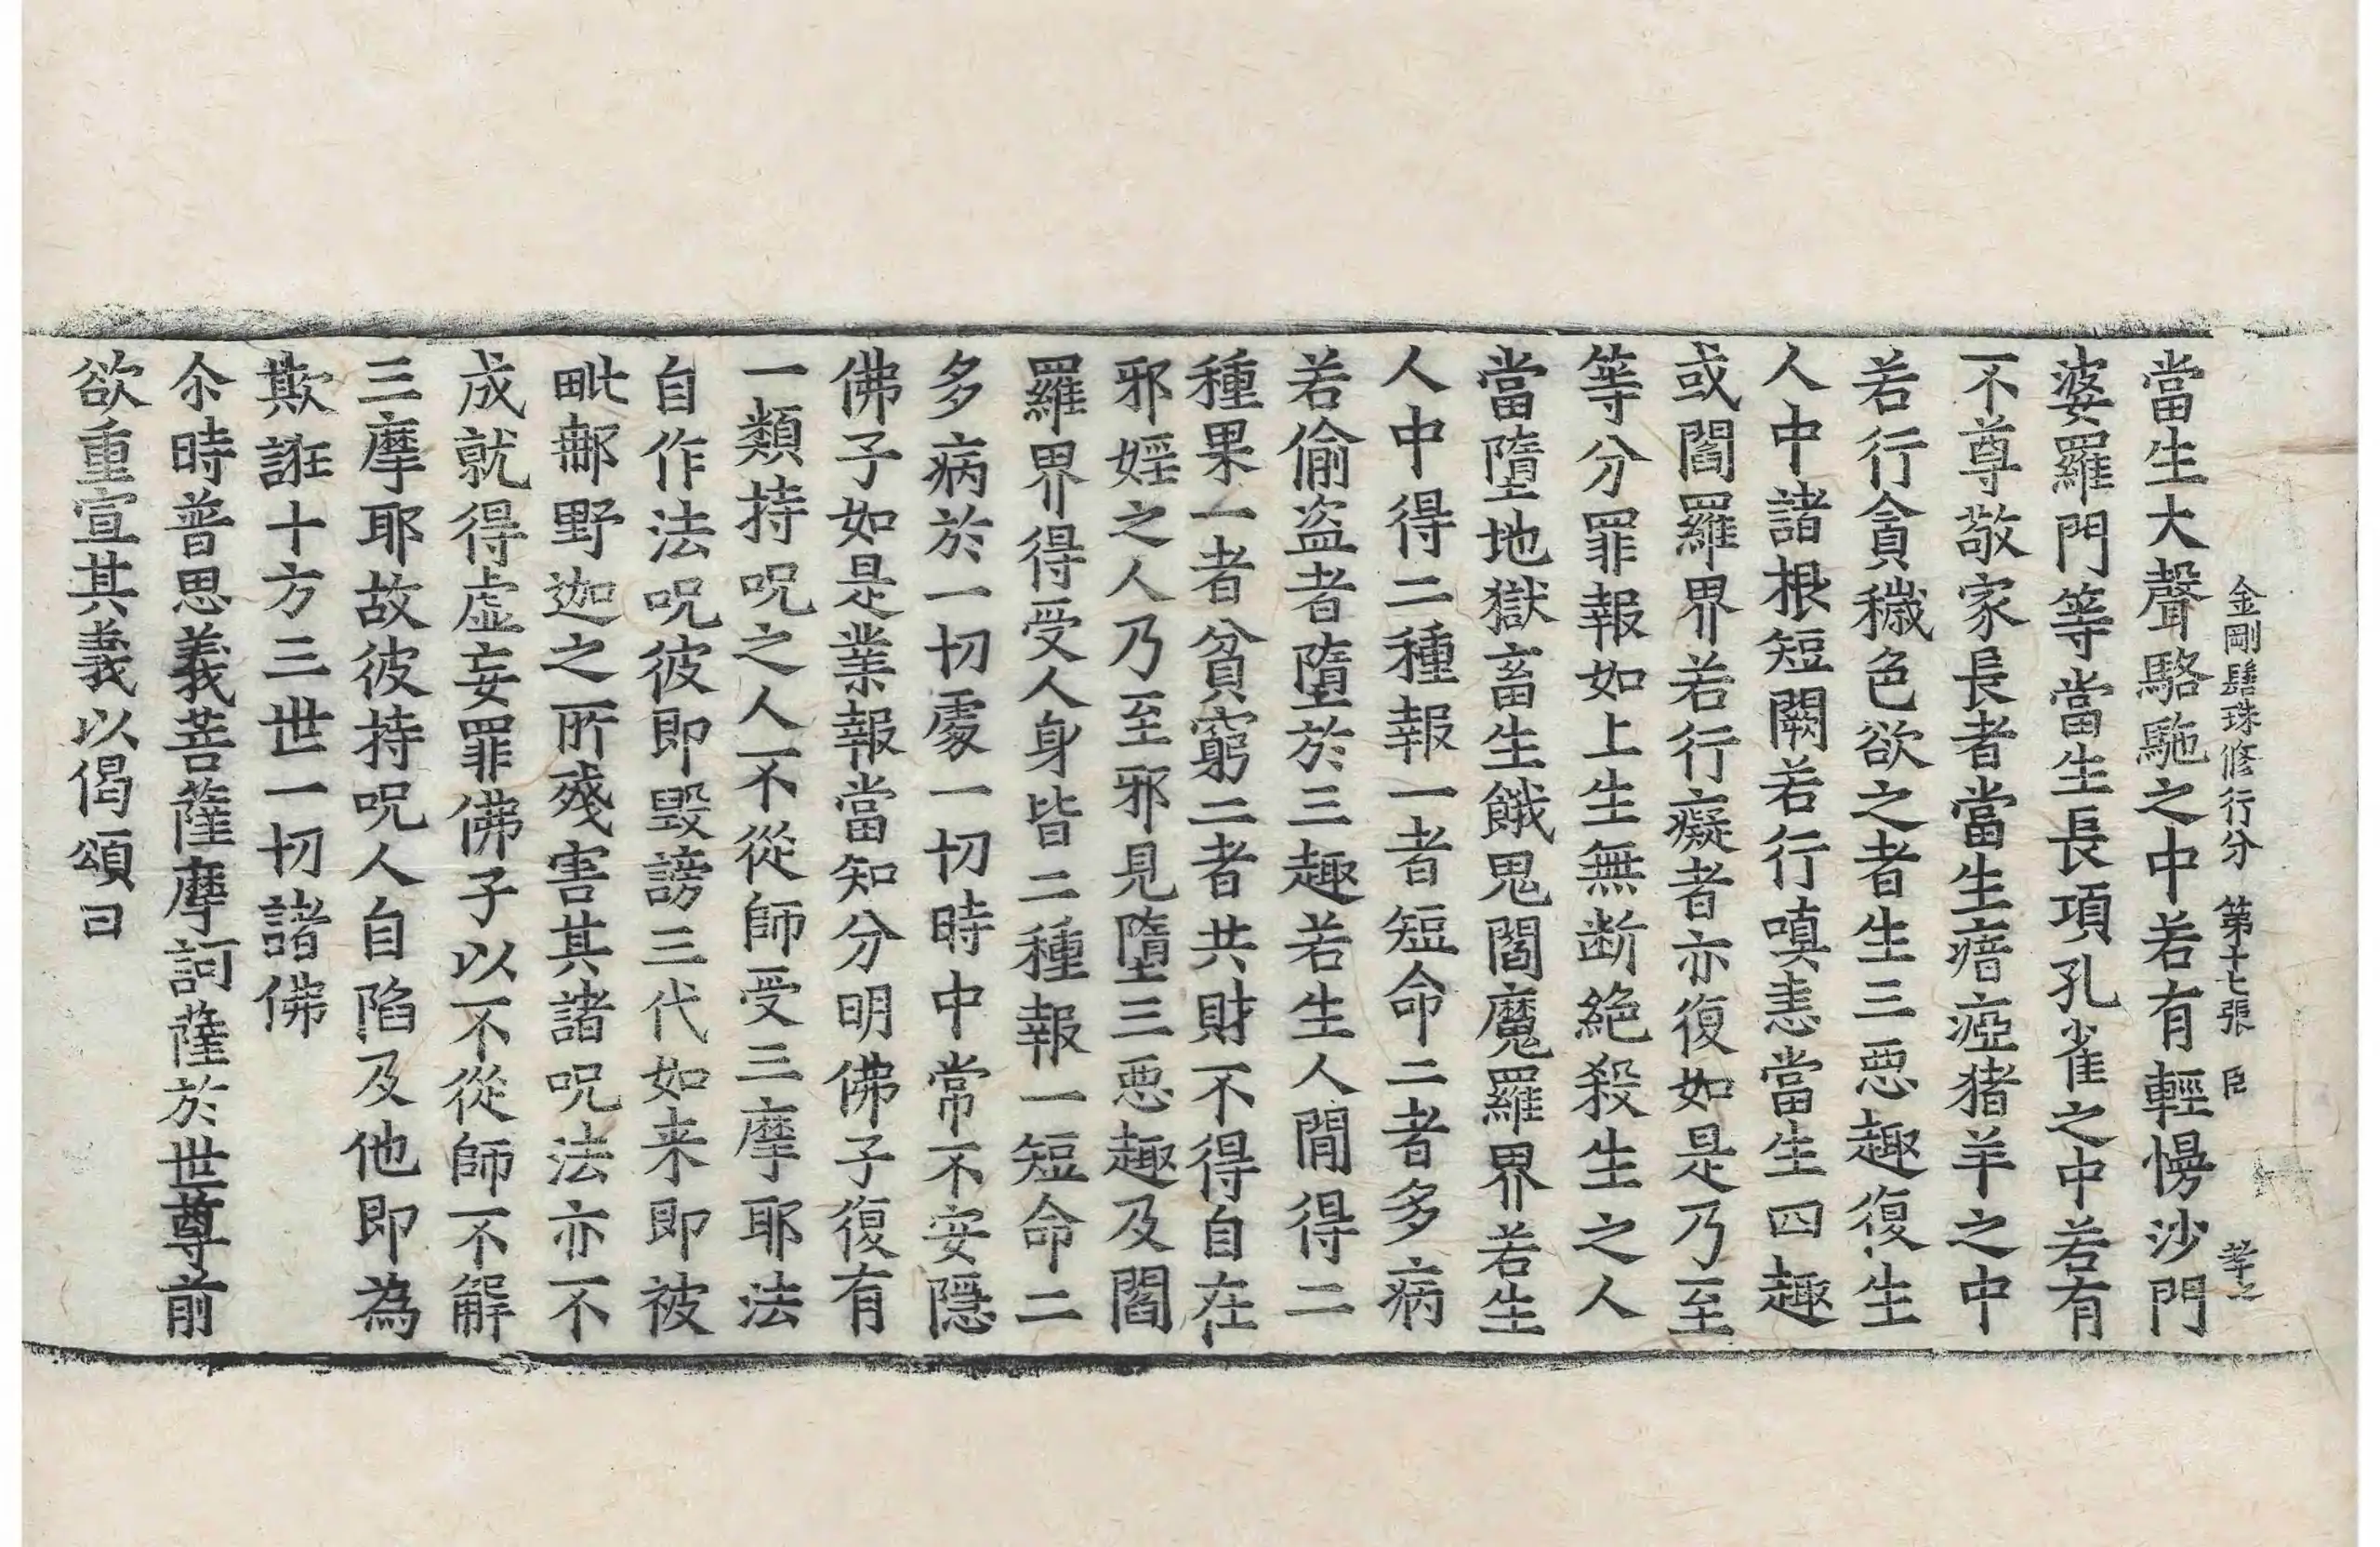 金剛髻珠修行分 第十七張 臣
當生大聲駱駞之中若有輕慢沙門
婆羅門等當生長項孔雀之中若有
不尊敬家長者當生瘖瘂猪羊之中
若行貪穢色欲之者生三惡趣復生
人中諸根短闕若行嗔恚當生四趣
或閻羅界若行癡者亦復如是乃至
等分罪報如上生無断絶殺生之人
當墮地獄畜生餓鬼閻魔羅界若生
人中得二種報一者短命二者多病
若偷盗者墮於三趣若生人間得二
種果一者貧窮二者共財不得自在
邪婬之人乃至邪見墮三惡趣及閻
羅界得受人身皆二種報一短命二
多病於一切處一切時中常不安隱
佛子如是業報當知分明佛子復有
一類持呪之人不從師受三摩耶法
自作法呪彼即毀謗三代如来即被
毗那野迦之所殘害其諸呪法亦不
成就得虛妄罪佛子以不從師不解
三摩耶故彼持呪人自陷及他即為
欺誑十方三世一切諸佛
尒時普思義菩薩摩訶薩於世尊前
欲重宣其義以偈頌曰